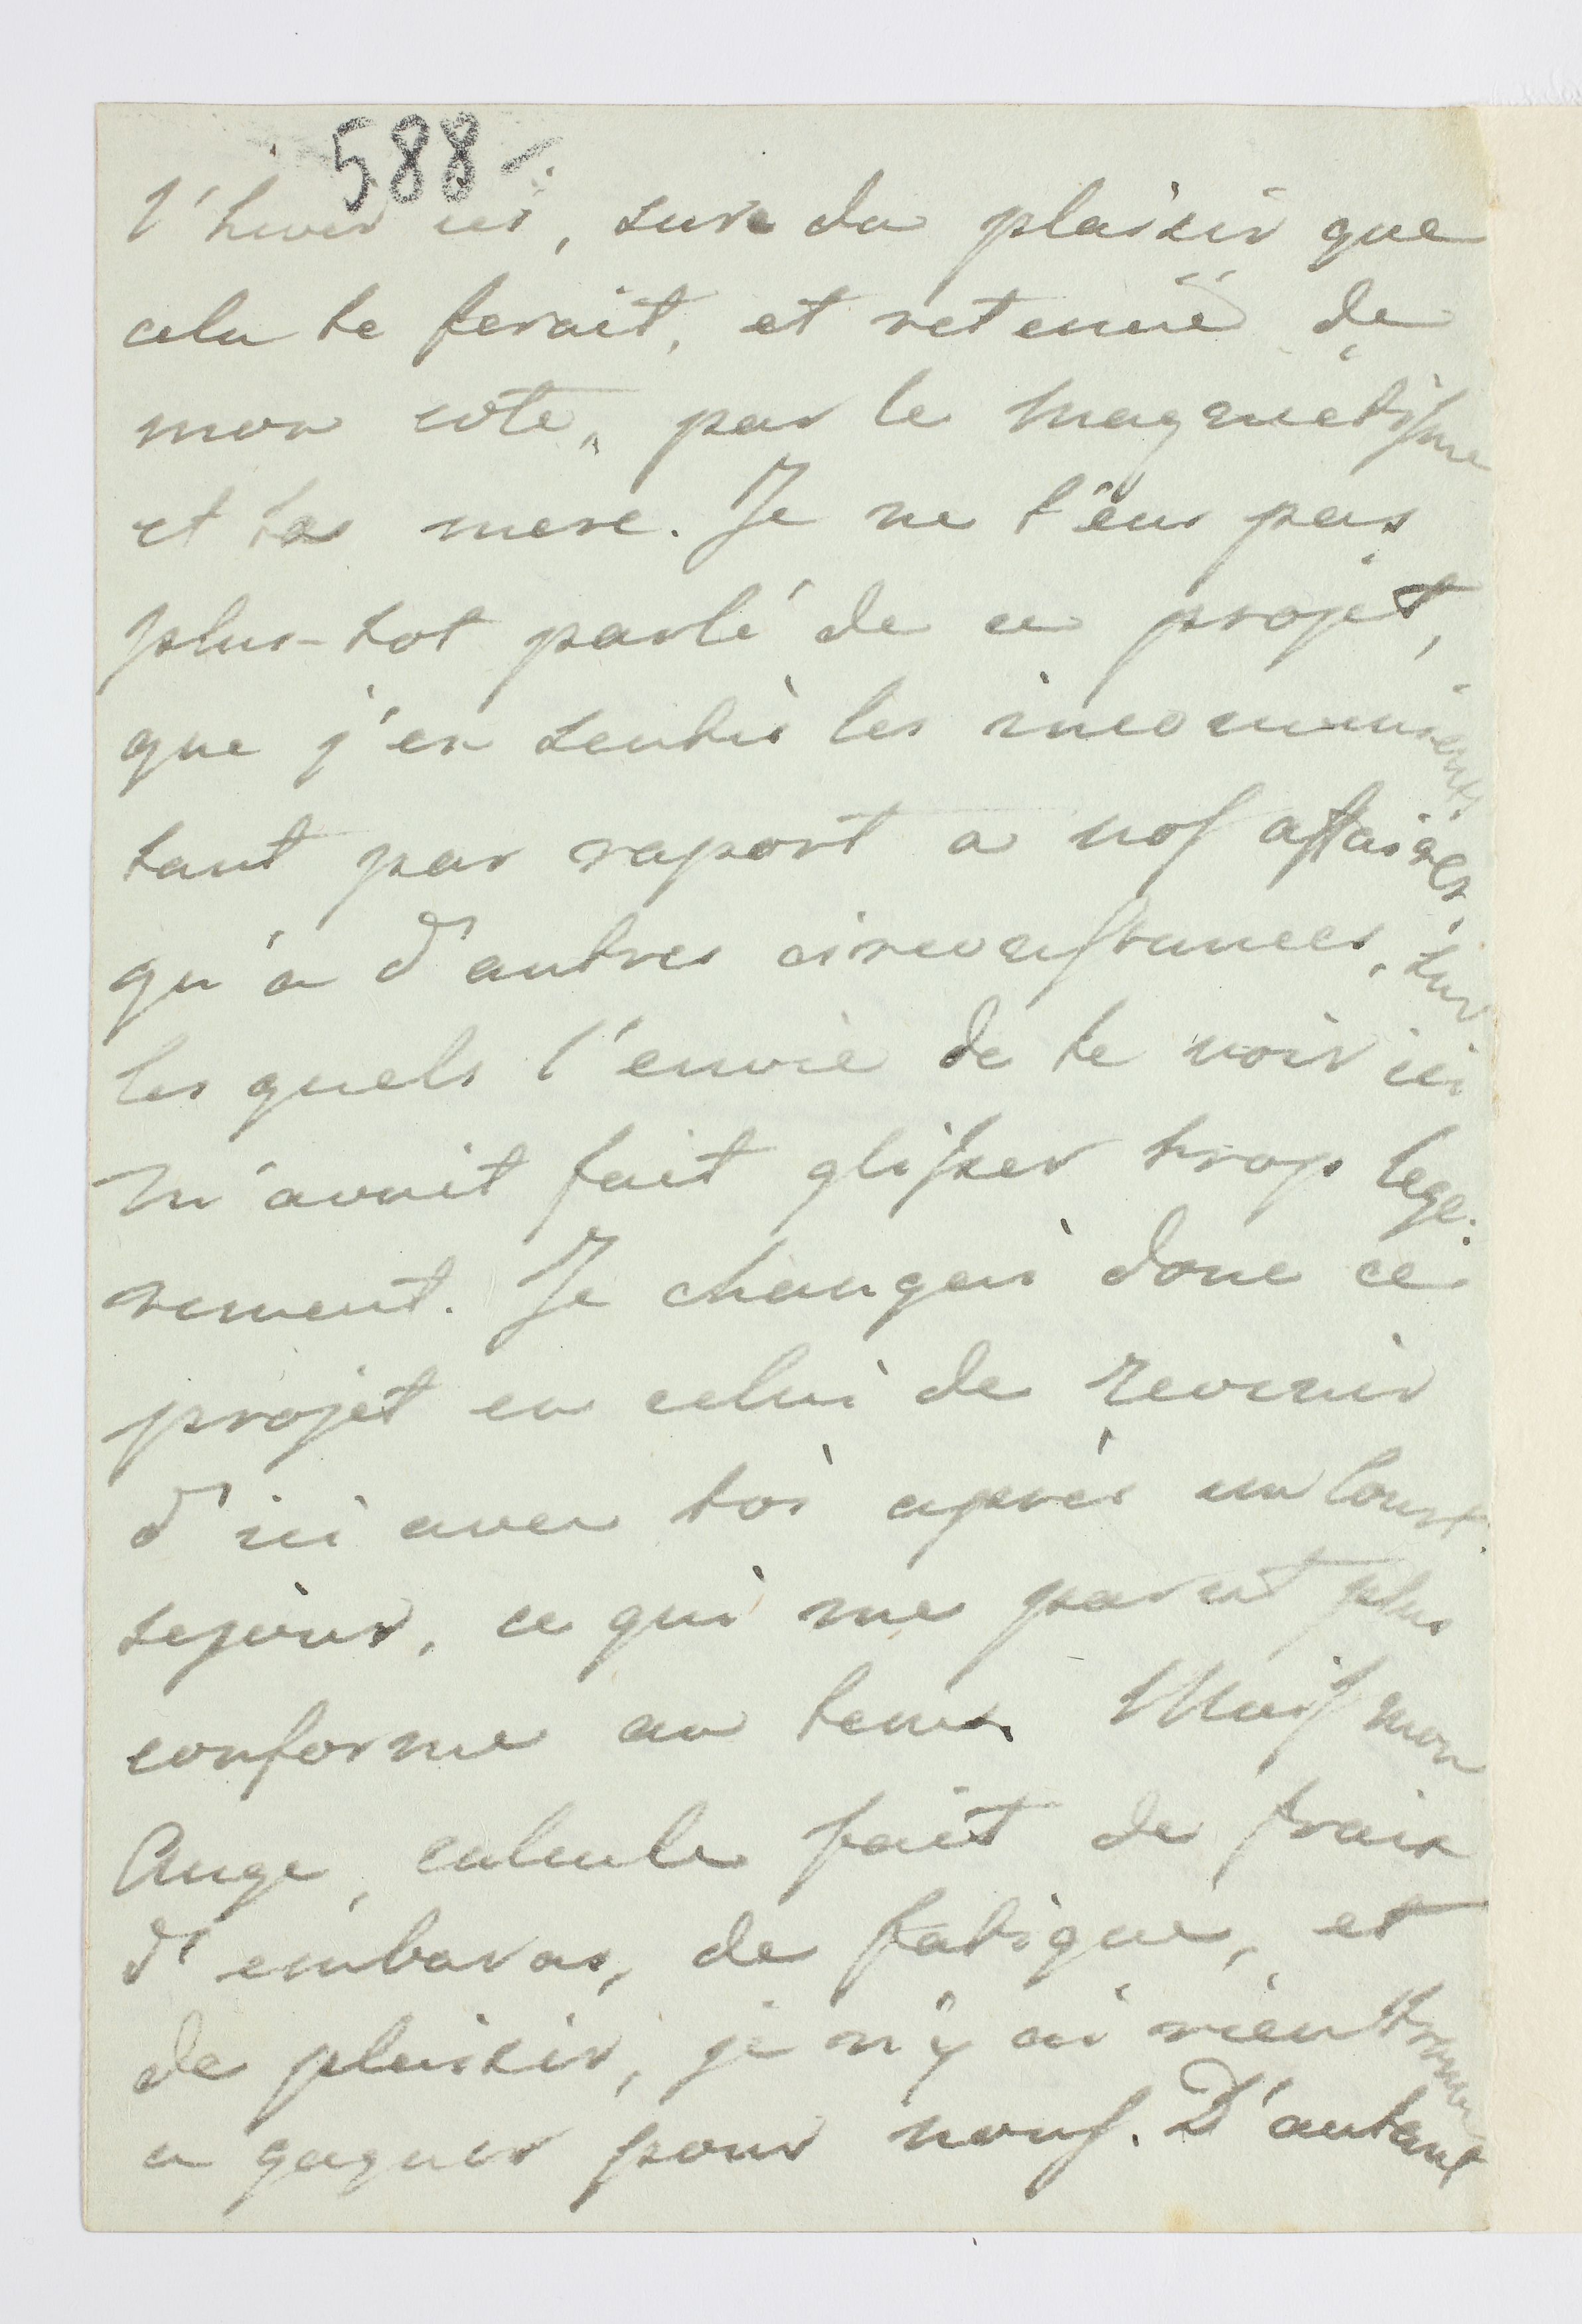 588-
l'hiver ici, sure du plaisir que
cela te ferait, et retenüe de
mon coté, par le magnetisme
et ta mere. Je ne t'eus pas
plus-tot parlé de ce projet,
que j'en sentis les inconveniens
tant par raport a nos affaires,
qu'a d'autres circonstances, sur
les quels l'envie de te voir ici
m'avait fait glisser trop lege:
rement. Je changeai donc ce
projet en celui de revenir
d'ici avec toi après un court
sejour, ce qui me parut plus
conforme au tems. Mais mon
Ange, calcule fait de frais
d'embaras, de fatigue, et
de plaisir, je n'y ai rien trouvé
a gagner pour nous. D'autant